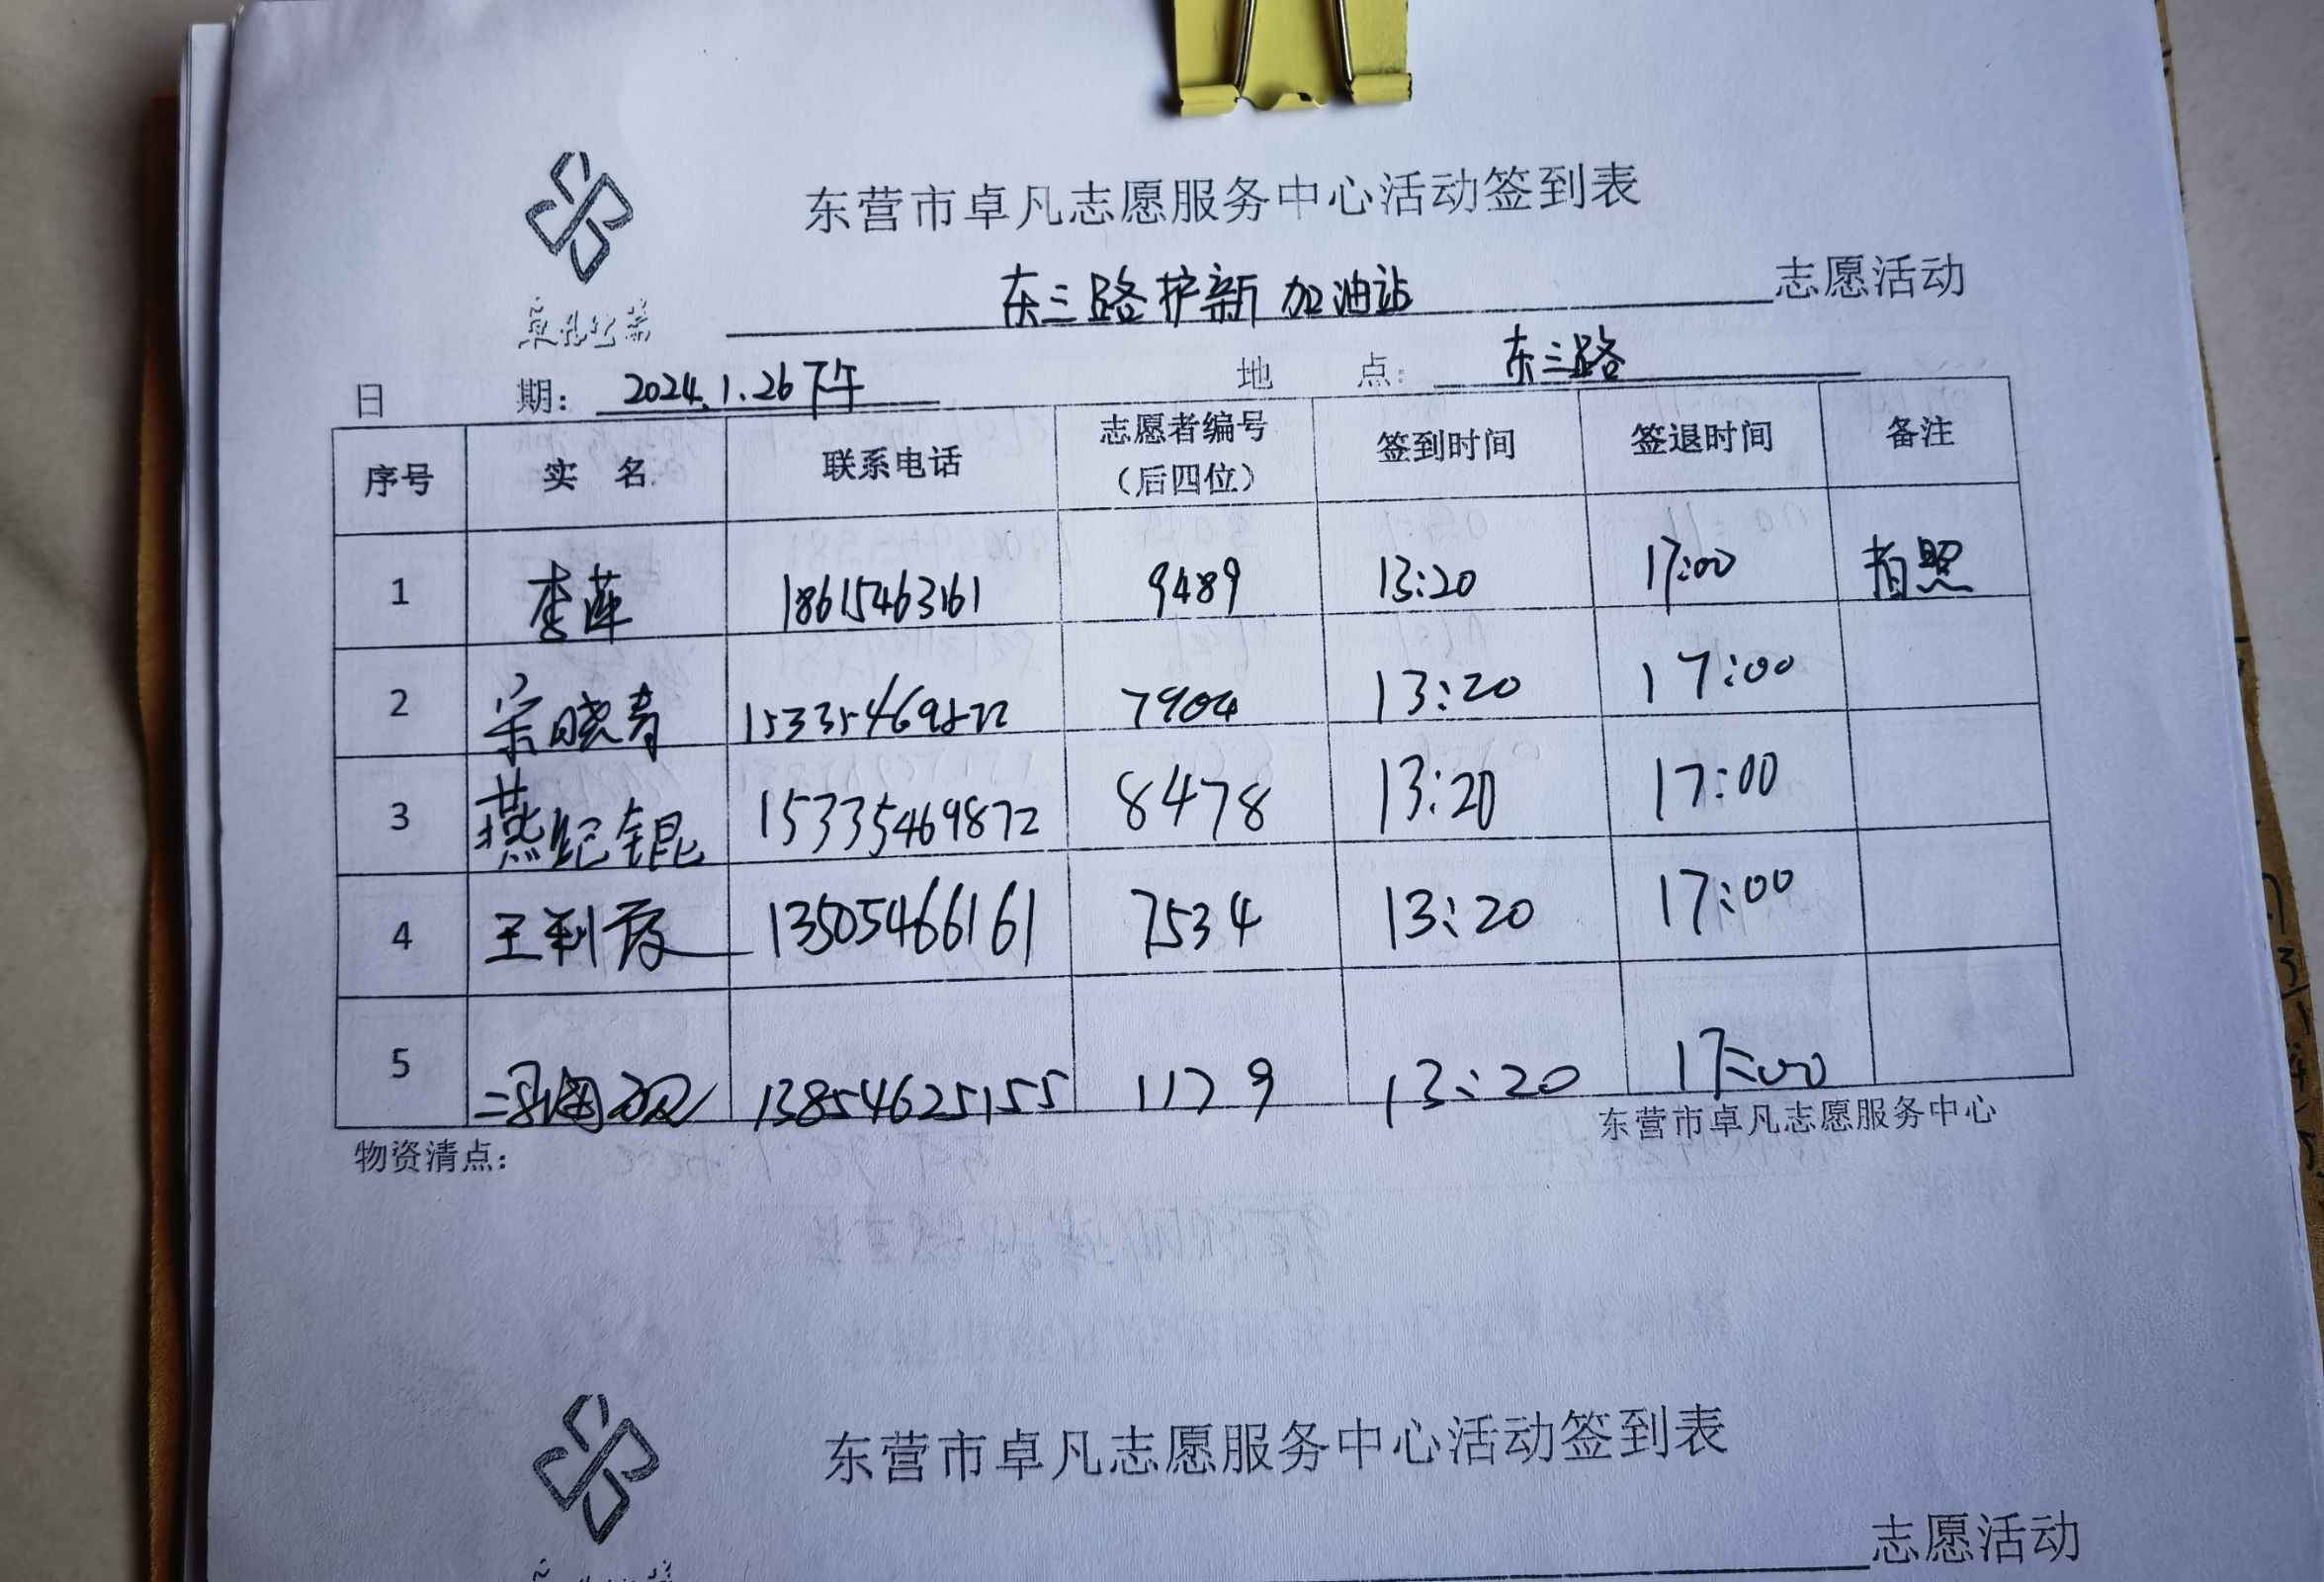 东营市卓凡志愿服务中心活动签到表
东三路护新加油站志愿活动
卓凡公益
日期：2024.1.26下午 地点：东三路
序号 实名 联系电话 志愿者编号（后四位） 签到时间 签退时间 备注
1 李莲 18615463161 9489 13:20 17:00 拍照
2 宋晓青 15335469872 7904 13:20 17:00
3 燕纪锟 15335469872 8478 13:20 17:00
4 王利霞 13505466161 7534 13:20 17:00
5 13854625155 1179 13:20 17:00
物资清点： 东营市卓凡志愿服务中心
东营市卓凡志愿服务中心活动签到表
志愿活动